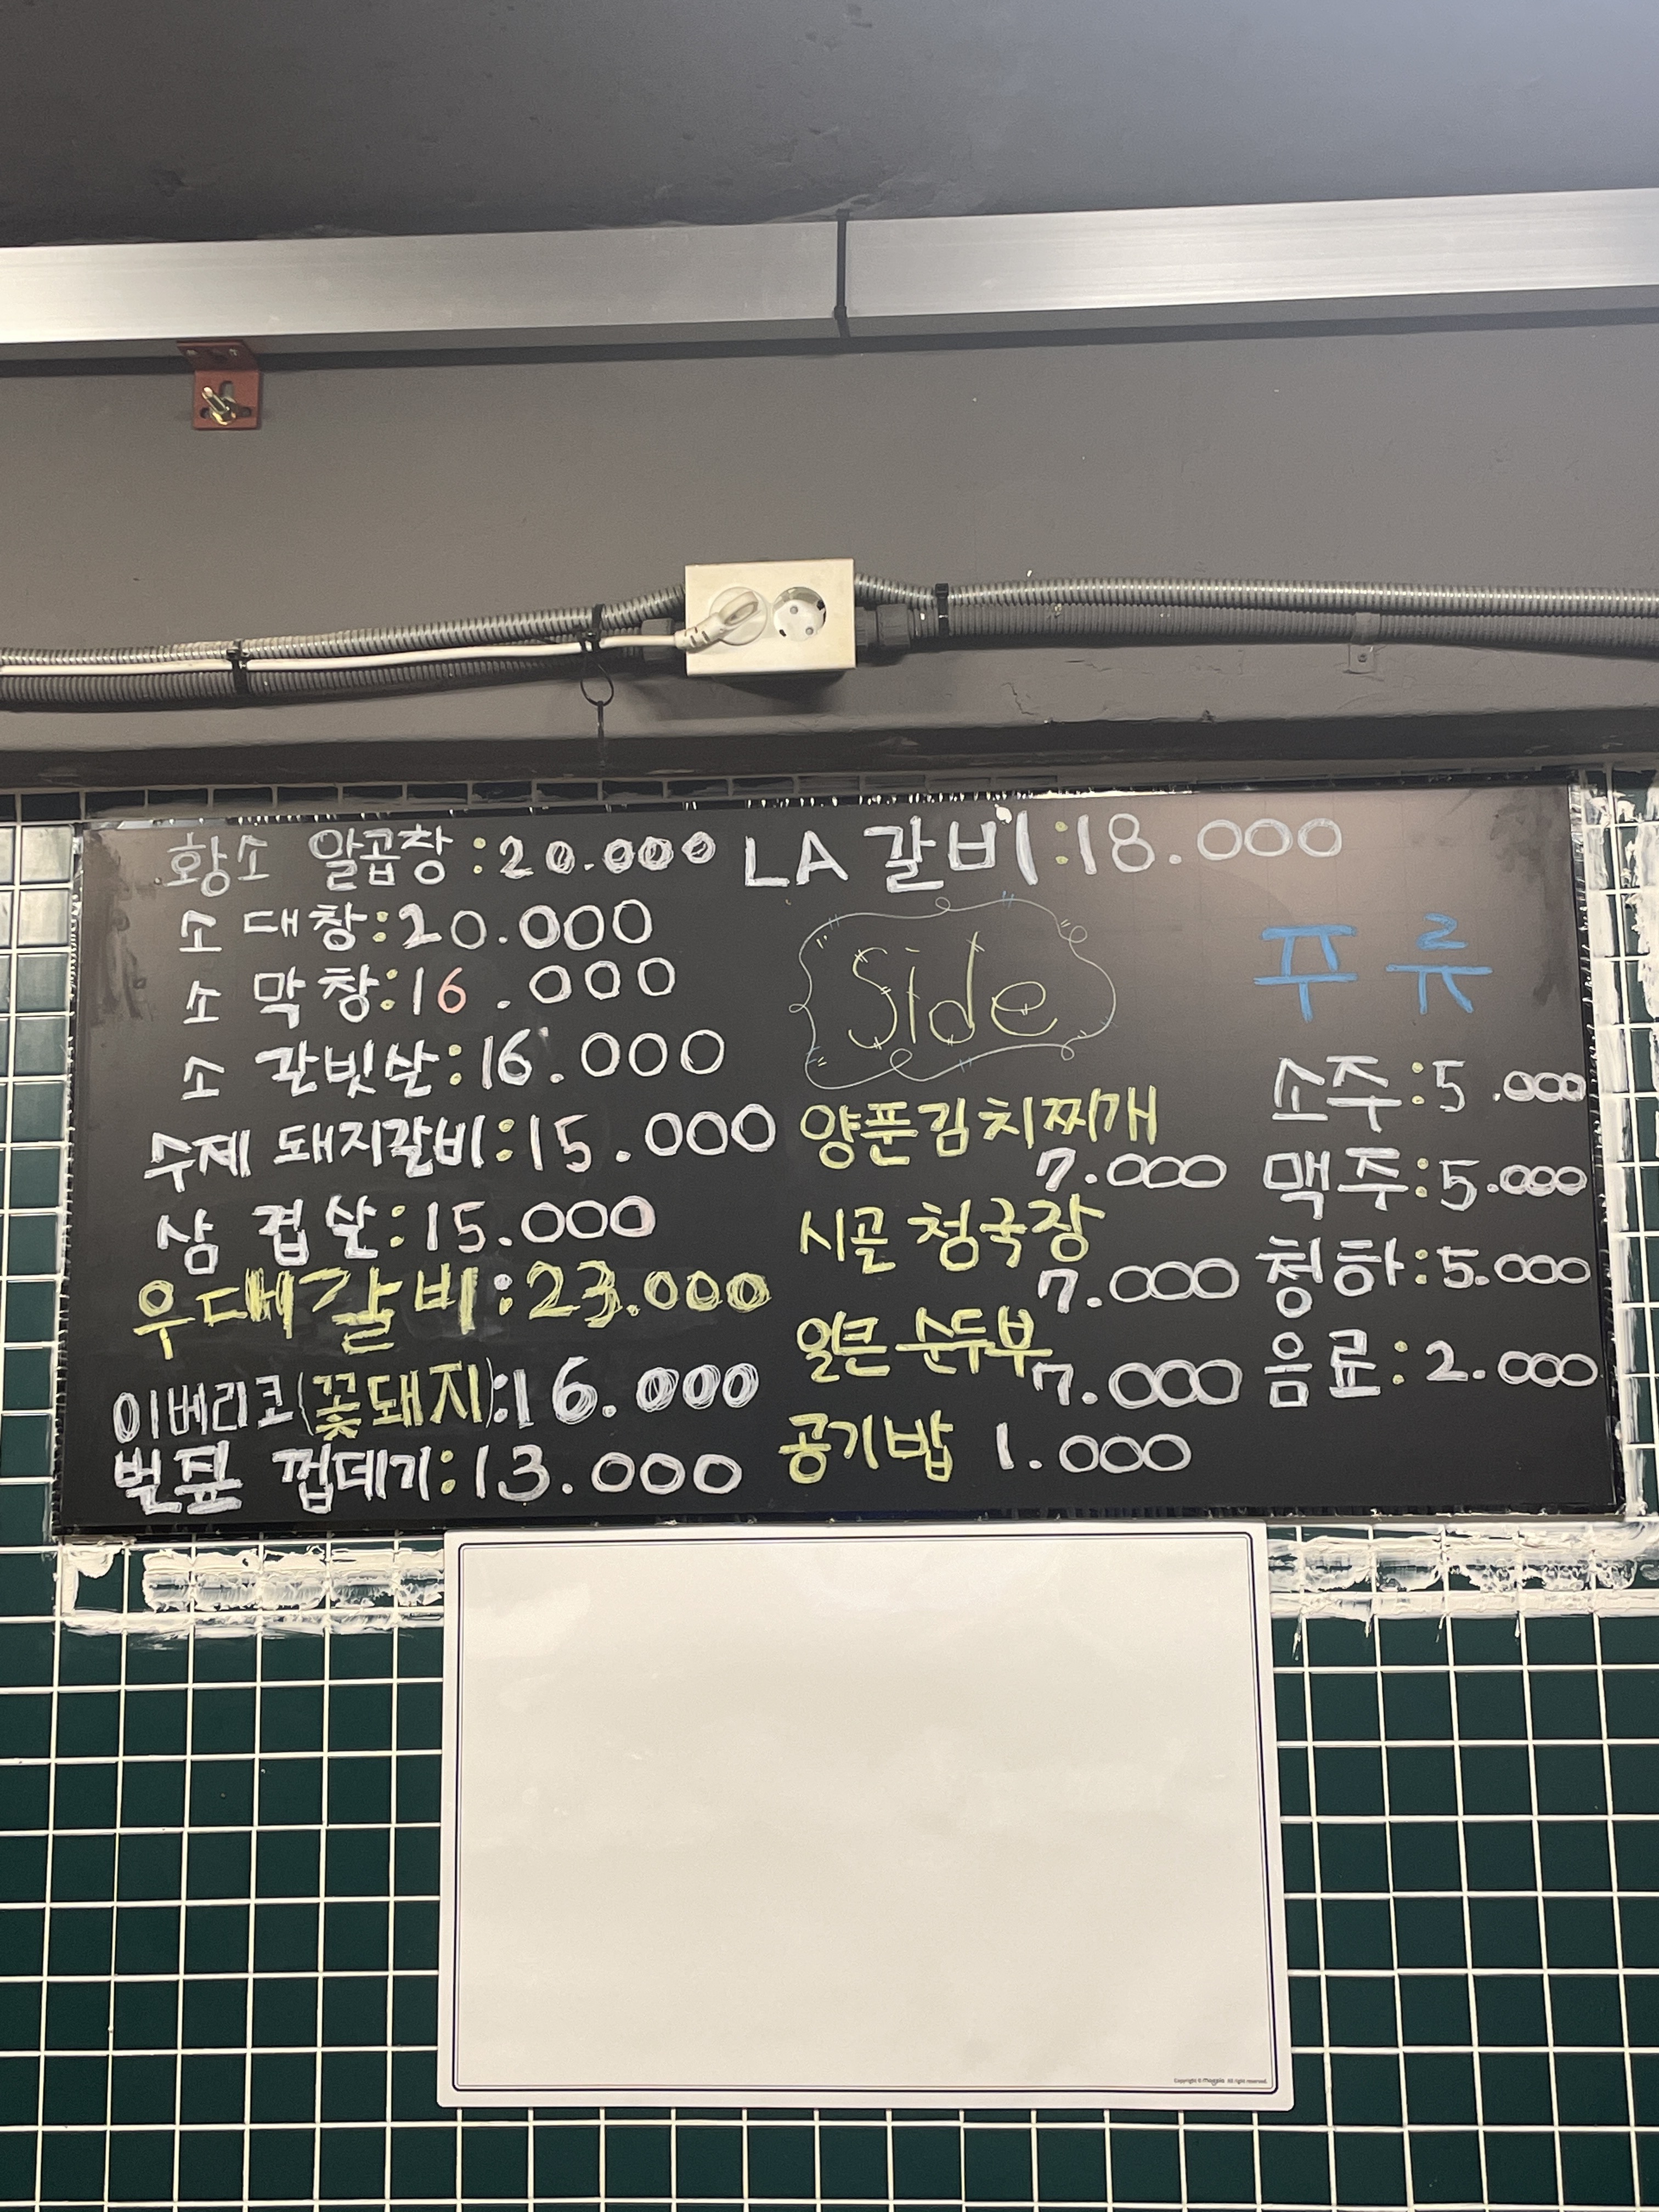 황소 알곱창:20.000
소 대창:20.000
소 막창:16.000
소 갈빗살:16.000
수제 돼지갈비:15.000
삼 겹 살:15.000
우대갈비:23.000
이베리코(꽃돼지):16.000
벌집 껍데기:13.000
LA 갈비:18.000
Side
양푼김치찌개
7.000
시골 청국장
7.000
얼큰 순두부
7.000
공기밥 1.000
주 류
소주:5.000
맥주:5.000
청하:5.000
음료:2.000
Copyright © Magpia All right reserved.